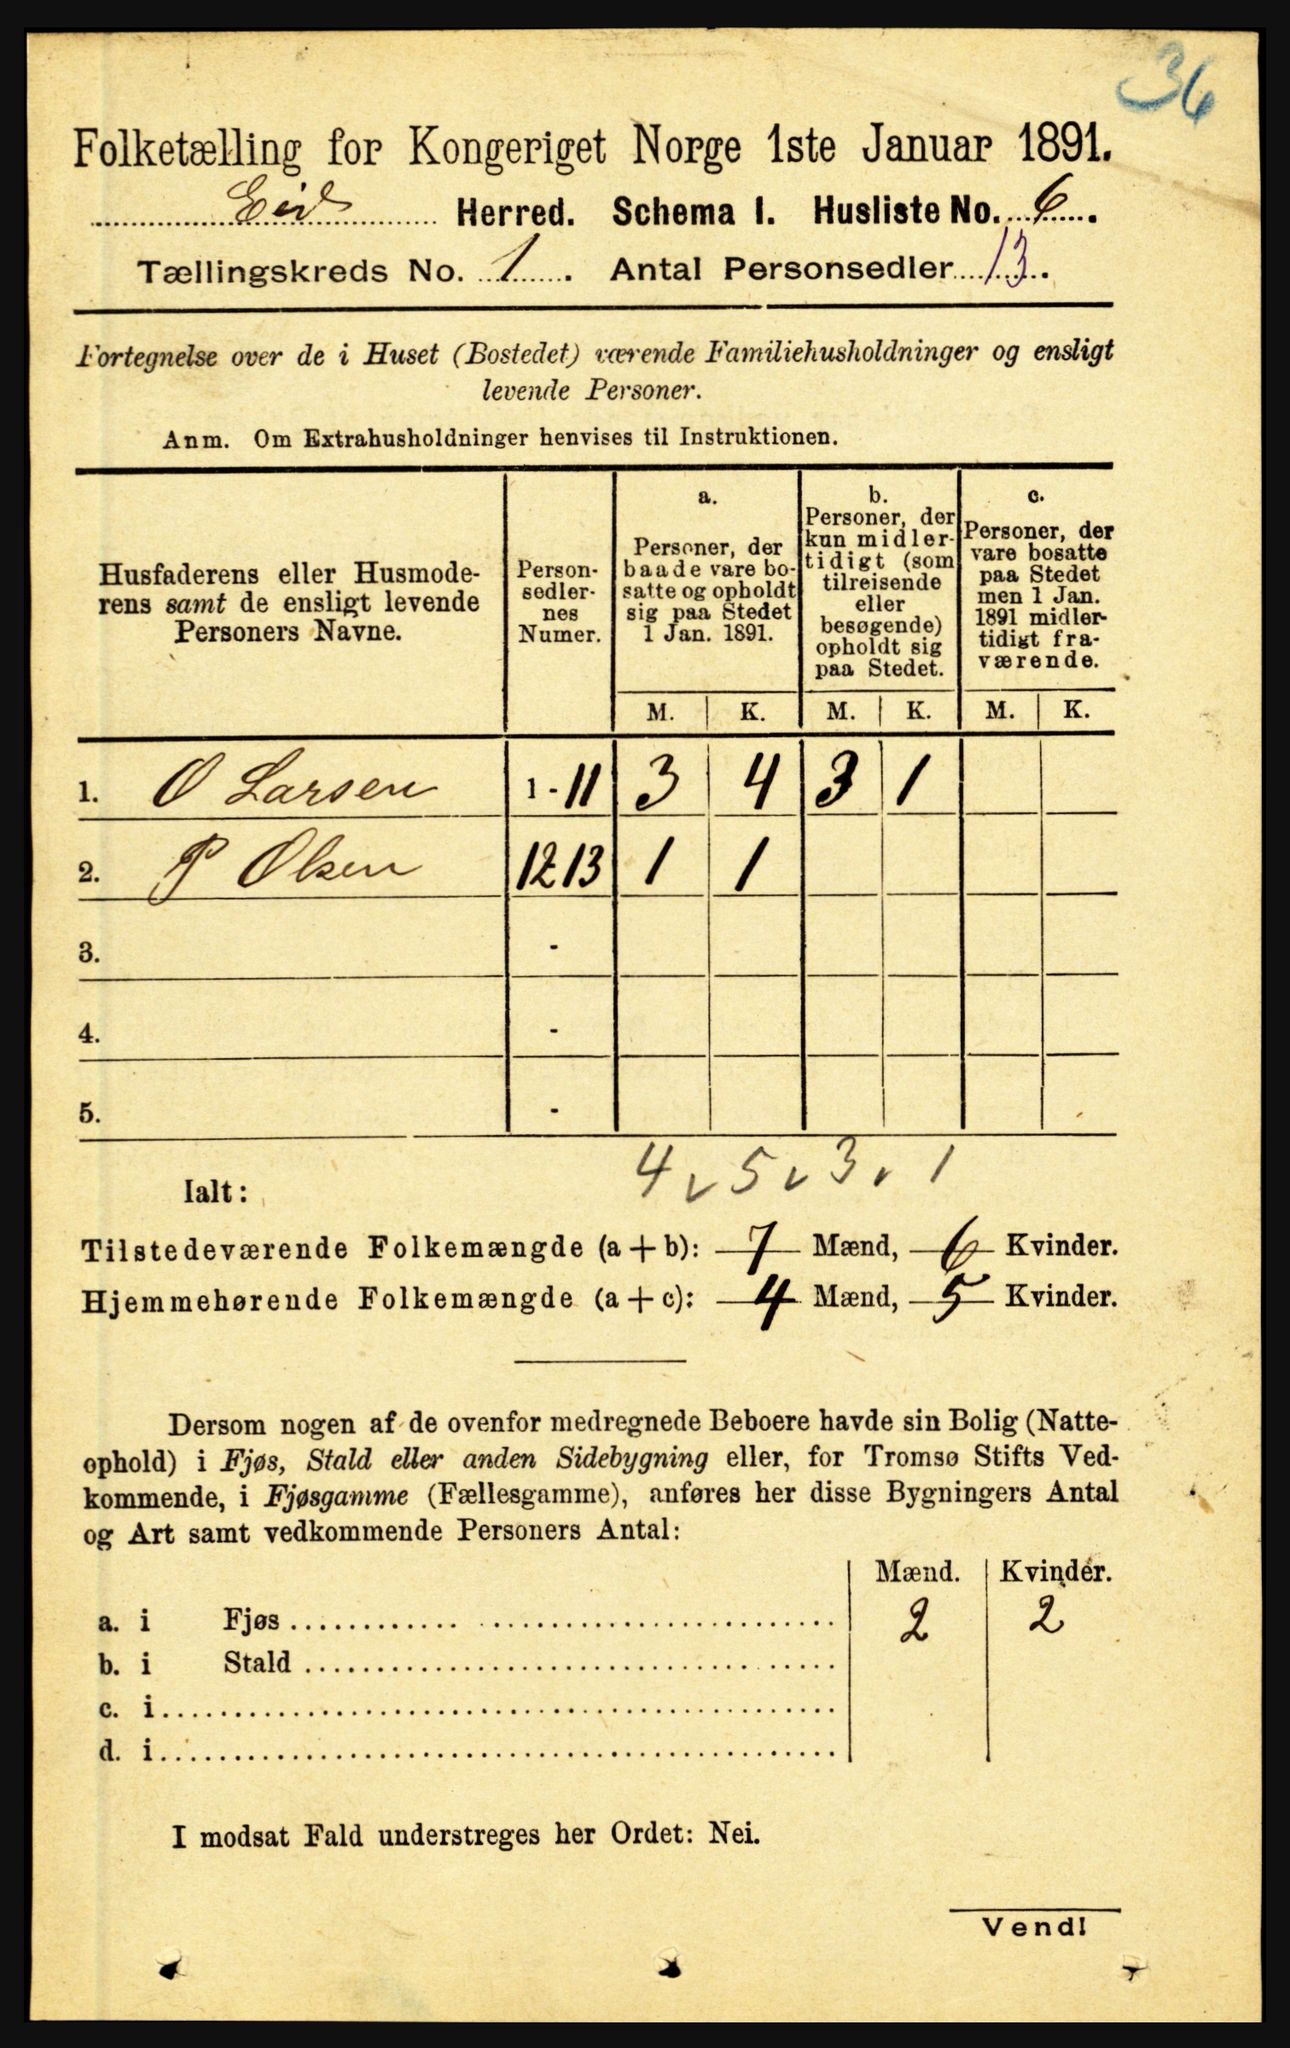 36
Folketælling for Kongeriget Norge 1ste Januar 1891.
Eid Herred. Schema I. Husliste No. 6.
Tællingskreds No. 1. Antal Personsedler 13.
Fortegnelse over de i Huset (Bostedet) værende Familiehusholdninger og ensligt
levende Personer.
Anm. Om Extrahusholdninger henvises til Instruktionen.
Husfaderens eller Husmode-
rens samt de ensligt levende
Personers Navne.
Person-
sedler-
nes
Numer.
a.
Personer, der
baade vare bo-
satte og opholdt
sig paa Stedet
1 Jan. 1891.
b.
Personer, der
kun midler-
tidigt (som
tilreisende
eller
besøgende)
opholdt sig
paa Stedet.
c.
Personer, der
vare bosatte
paa Stedet
men 1 Jan.
1891 midler-
tidigt fra-
værende.
M. K. M. K. M. K.
1. O Larsen 1-11 3 4 3 1
2. P Olsen 12 13 1 1
3. -
4. -
5. -
4 5 3 1
Ialt:
Tilstedeværende Folkemængde (a + b): 7 Mænd, 6 Kvinder.
Hjemmehørende Folkemængde (a + c): 4 Mænd, 5 Kvinder.
Dersom nogen af de ovenfor medregnede Beboere havde sin Bolig (Natte-
ophold) i Fjøs, Stald eller anden Sidebygning eller, for Tromsø Stifts Ved-
kommende, i Fjøsgamme (Fællesgamme), anføres her disse Bygningers Antal
og Art samt vedkommende Personers Antal:
Mænd. Kvinder.
a. i Fjøs 2 2
b. i Stald
c. i
d. i
I modsat Fald understreges her Ordet: Nei.
Vend!